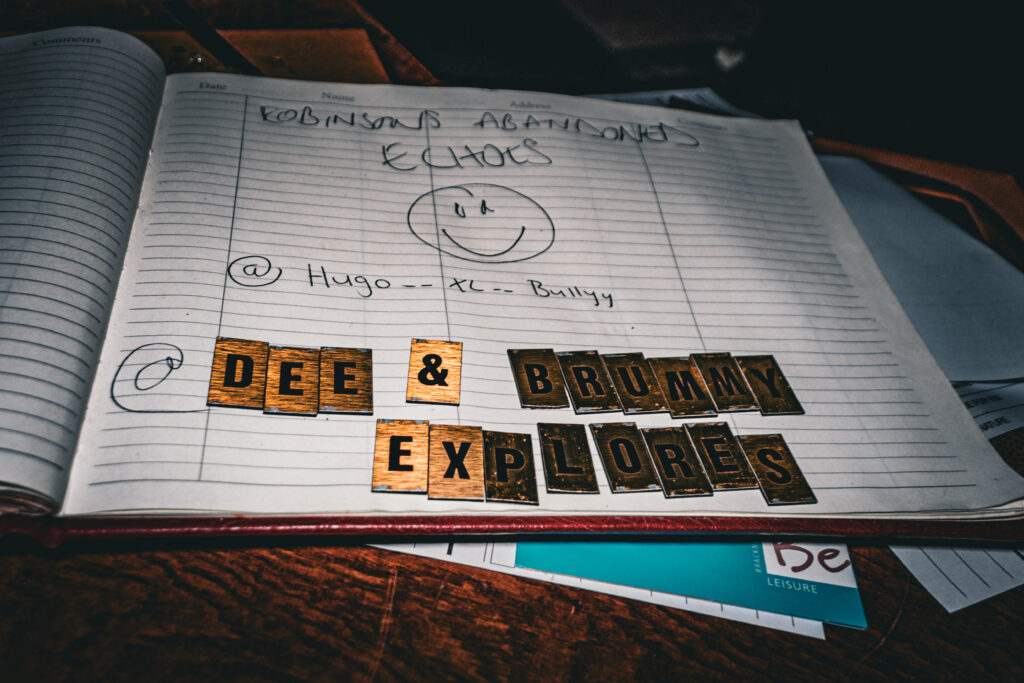 Comments
Date Name Address
ROBINSONS ABANDONED
ECHOES
@ Hugo__XL__Bullyy
@ DEE & BRUMMY
EXPLORES
Be
LEISURE